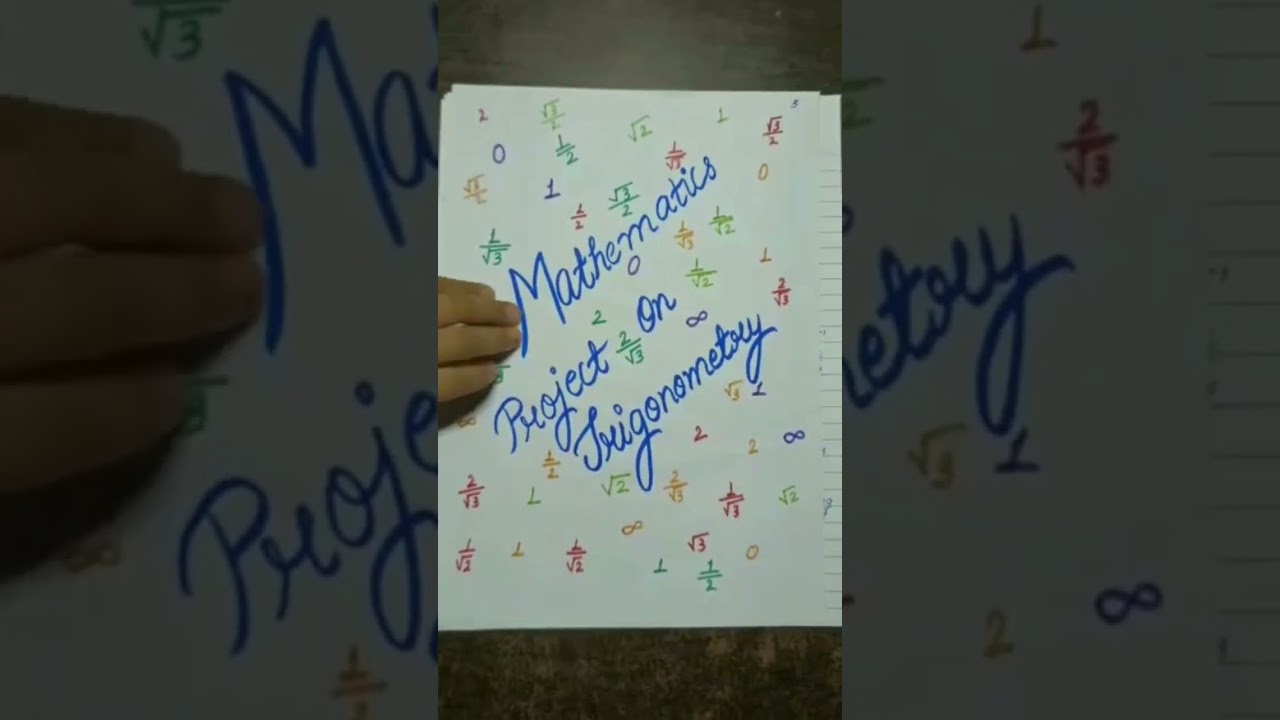 2 √3/2 √2 1 √3/2
0 1/2 1/√3
√3/2 1 √3/2 0
1/2 1/√3 1/√2
1/√3
Mathematics
0 1/√2 1
2/√3
2 ∞
Project 2/√3 on
Trigonometry
√3 1
∞ 2 2 ∞
1/2
2/√3 1 √2 2/√3 1/√3 √2
∞
1/√2 1 1/√2 √3 0
1 1/2